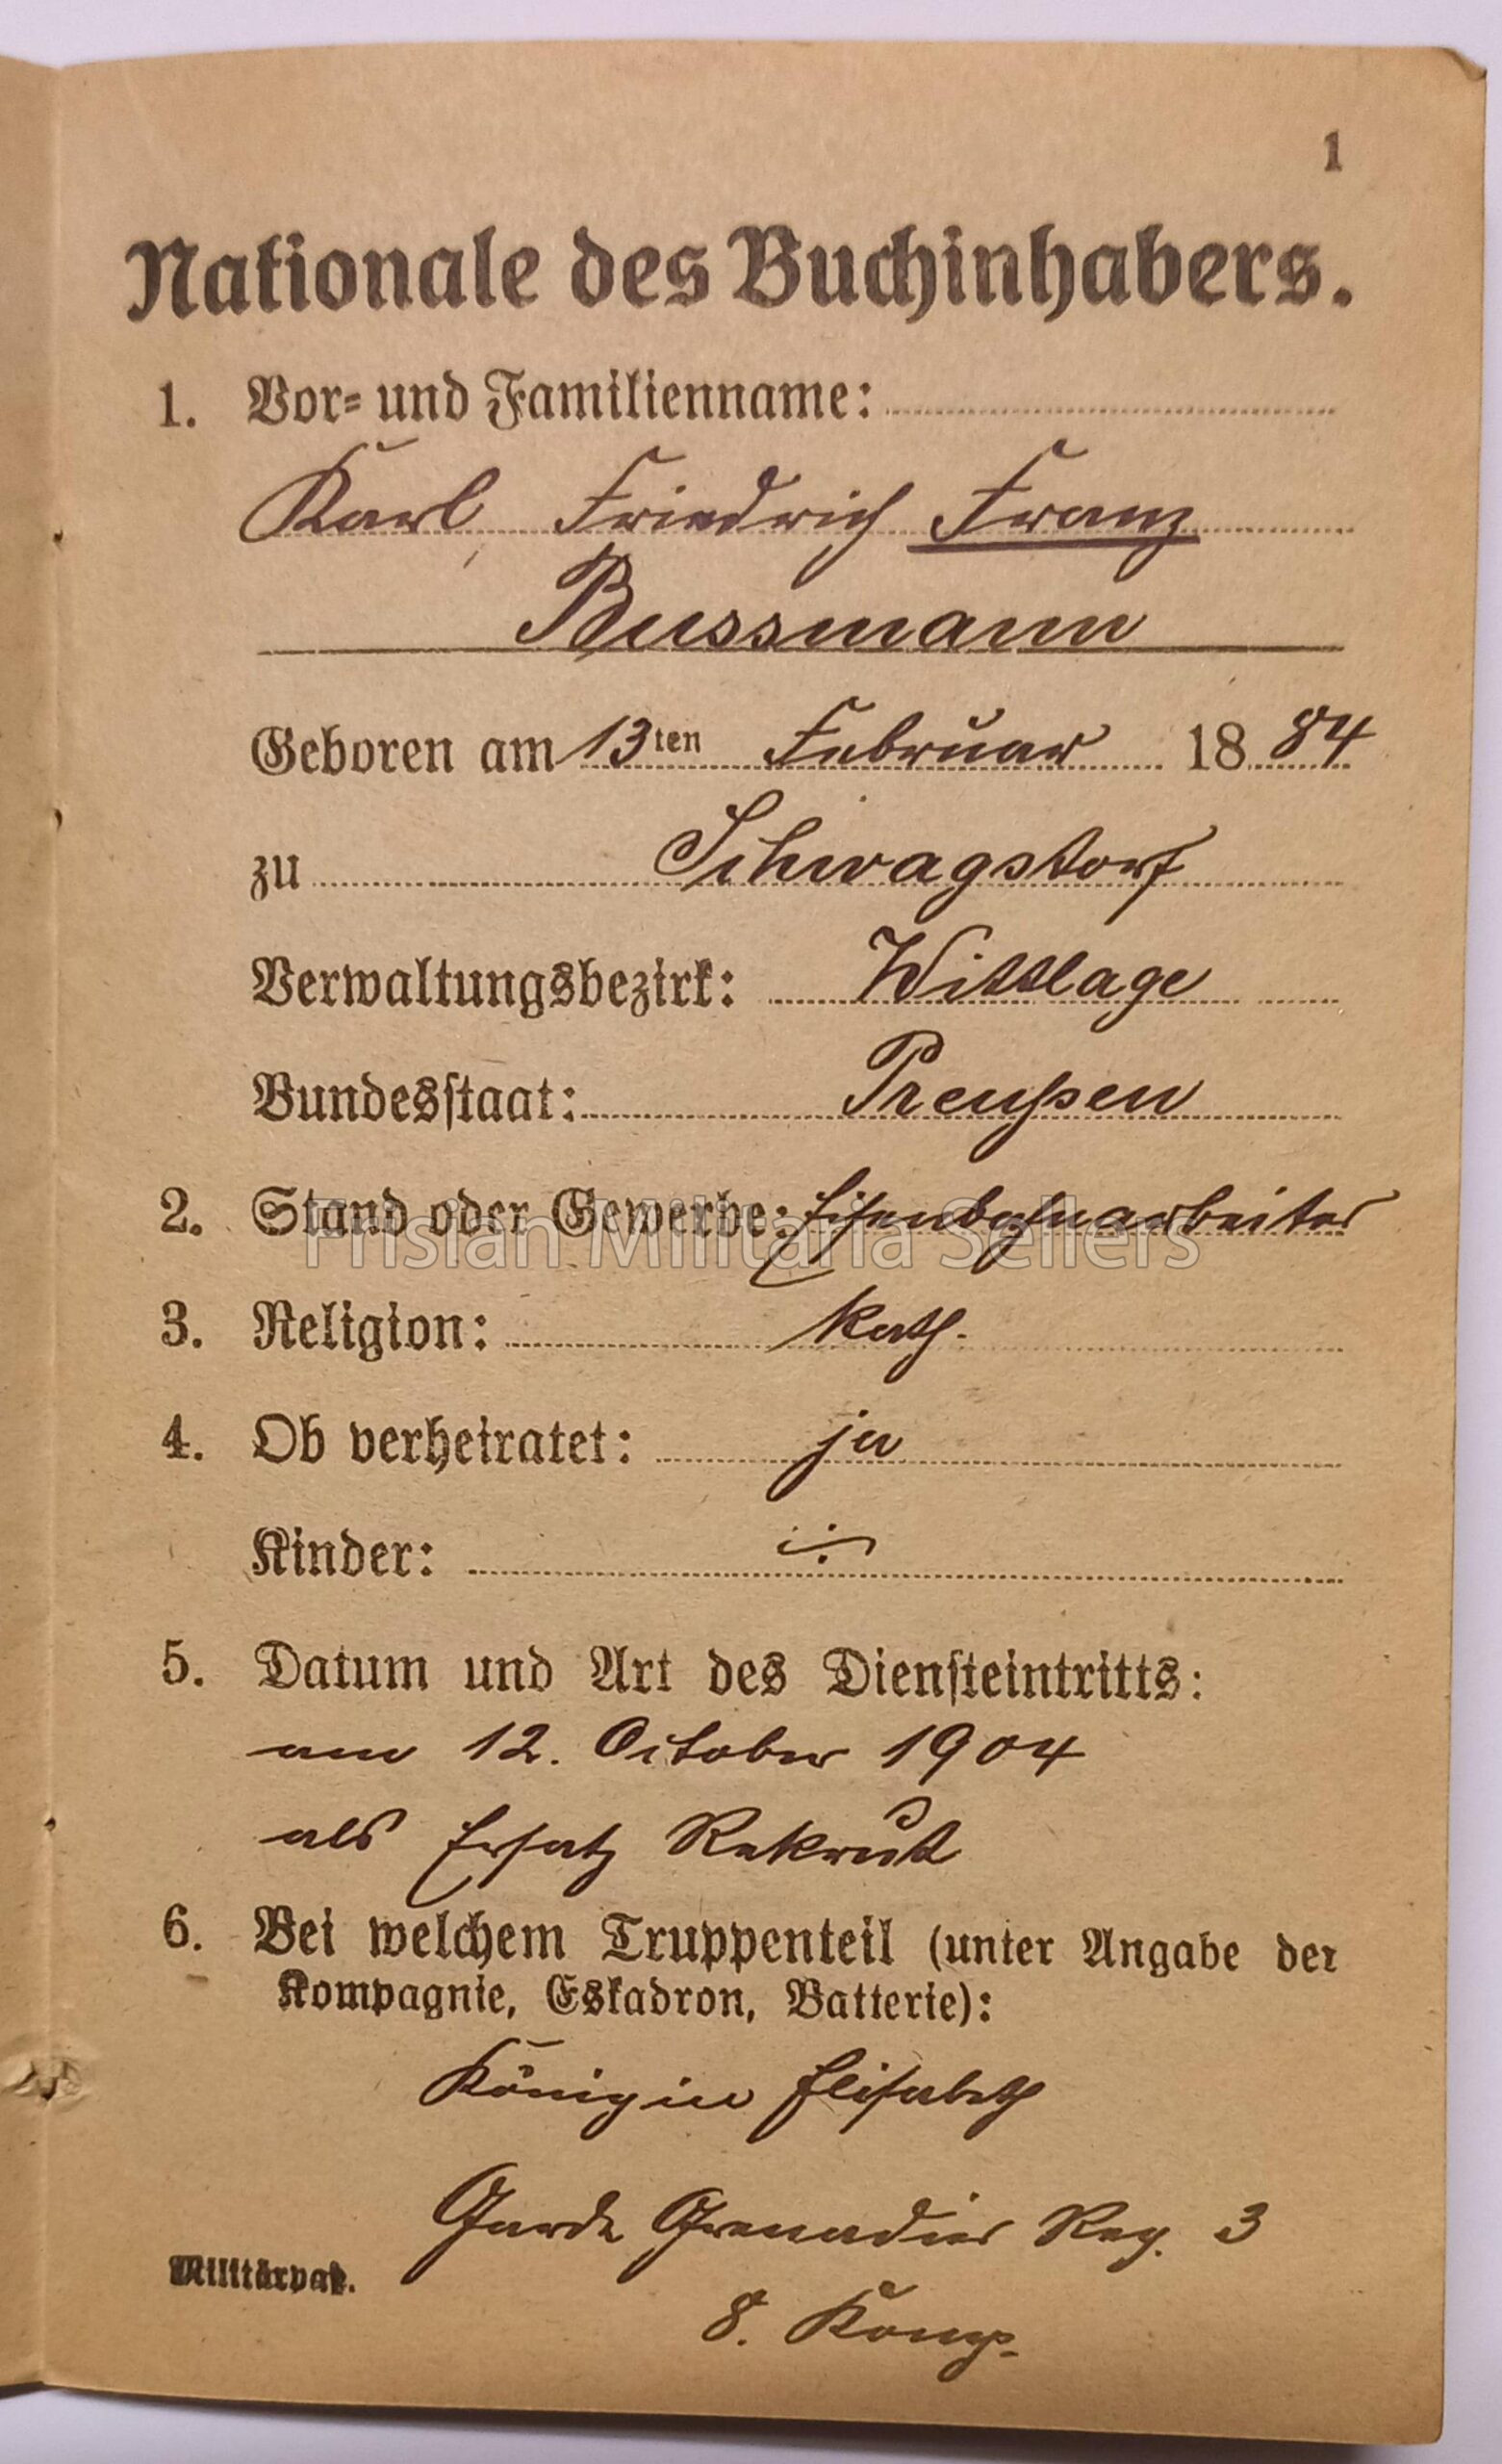 1
Nationale des Buchinhabers.
1. Vor= und Familienname:
Karl Friedrich Franz
Bussmann
Geboren am 13ten Februar 1884
zu Schwagstorf
Verwaltungsbezirk: Wittlage
Bundesstaat: Preußen
2. Stand oder Gewerbe: Eisenbahnarbeiter
Frisian Militaria Sellers
3. Religion: kath.
4. Ob verheiratet: ja
Kinder: ·/·
5. Datum und Art des Diensteintritts:
am 12. October 1904
als Ersatz Rekrut
6. Bei welchem Truppenteil (unter Angabe der
Kompagnie, Eskadron, Batterie):
Königin Elisabeth
Garde Grenadier Reg. 3
Militärpaß.
8. Komp.